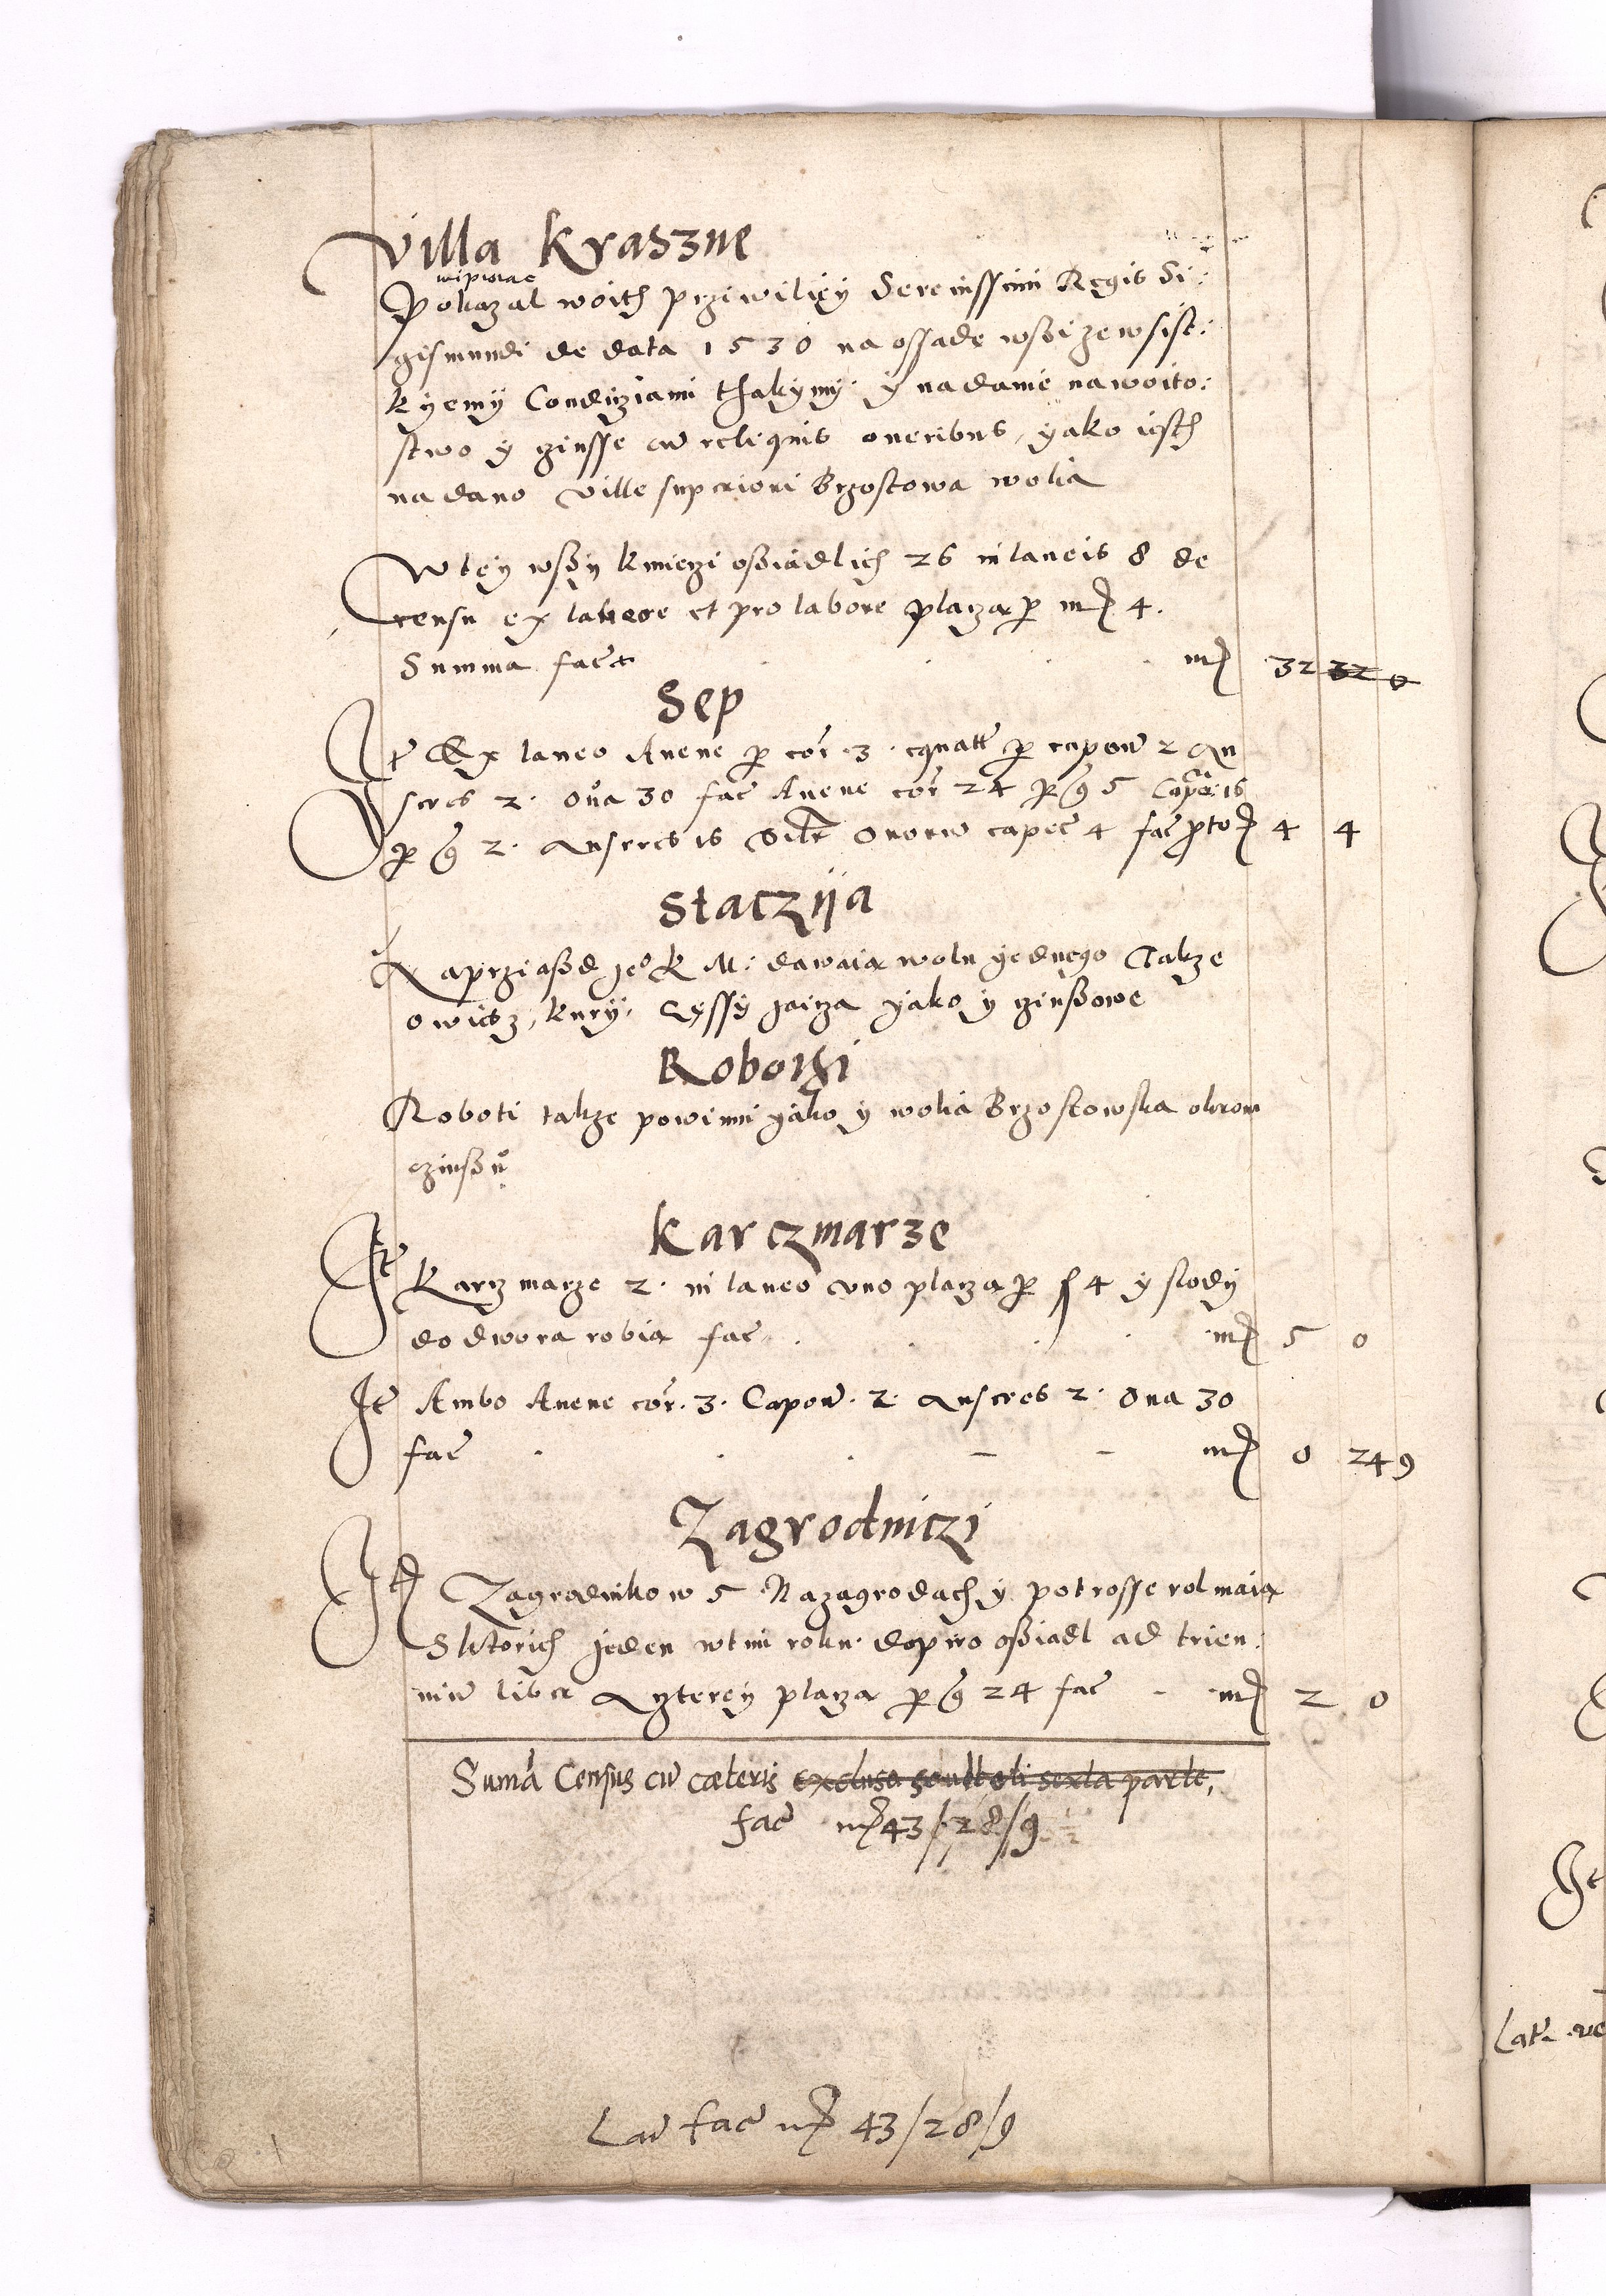 Villa Kraszne
Pokazal woith prziwiliey Serenissimi Regis Si:
gismundi de data 1530 na ossade wssi ze wsist:
kyemy Condiziami thakymy. y nadanie na woito:
stwo y zinsse cū reliquis oneribus, yako iesth
nadano Ville superiori Brzostowa wolia
W tey wssy kmiezi ossiadlich 26 in laneis 8 de
censu ex labore et pro labore plaza p mͬ 4.
Summa facit mͬ 32 32 0
Sep
It Ex laneo Auene p cor 3. equatt p capon 2 An
seres 2. Oua 30 fac Auene cor 24 p g 5 Capo: 16
p g 2. Anseres 16 Ouorū capec 4 fac 4 4
Staczyja
Na prziassd Je° K M: dawaia wolu yednego Takze
owiesz, kury, Gyssy jaiza yako y zinssowe
Robothi
Roboti takze powinni yako y wolia Brzostowska okrom
czinssu
Karczmarze
It Karzmarze 2. in laneo vno plaza p f 4 y slody
do dwora robia fac mͬ 5 0
It Ambo Auene cor. 3. Capon. 2. Anseres 2. Oua 30
fac mͬ 0 24 9
Zagrodniczi
It Zagrodnikow 5 Na zagrodach y po trosse rol maia
S ktorich jeden w tim roku dopiro ossiadl ad trien:
niū liber A czterey plaza p g 24 fac mͬ 2 0
Suma Census cū cæteris exclusa sculteti sexta parte,
fac mͬ 43/28/9
Lat fac mͬ 43/28/9